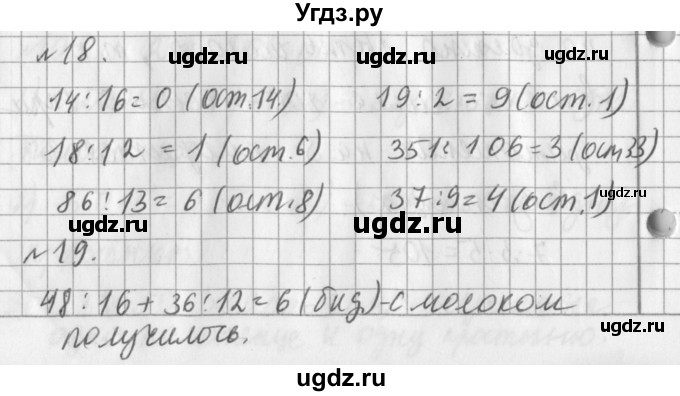 Угдз.ру
№18.
14:16=0 (ост.14.) 19:2=9(ост.1)
18:12=1(ост.6) 351:106=3(ост33)
86:13=6(ост.8) 37:9=4(ост.1)
№19.
48:16+36:12=6(бид)-с молоком
получилось.
ugdz.ru ugdz.ru
ugdz.ru ugdz.ru
ugdz.ru ugdz.ru
ugdz.ru ugdz.ru
ugdz.ru
ugdz.ru